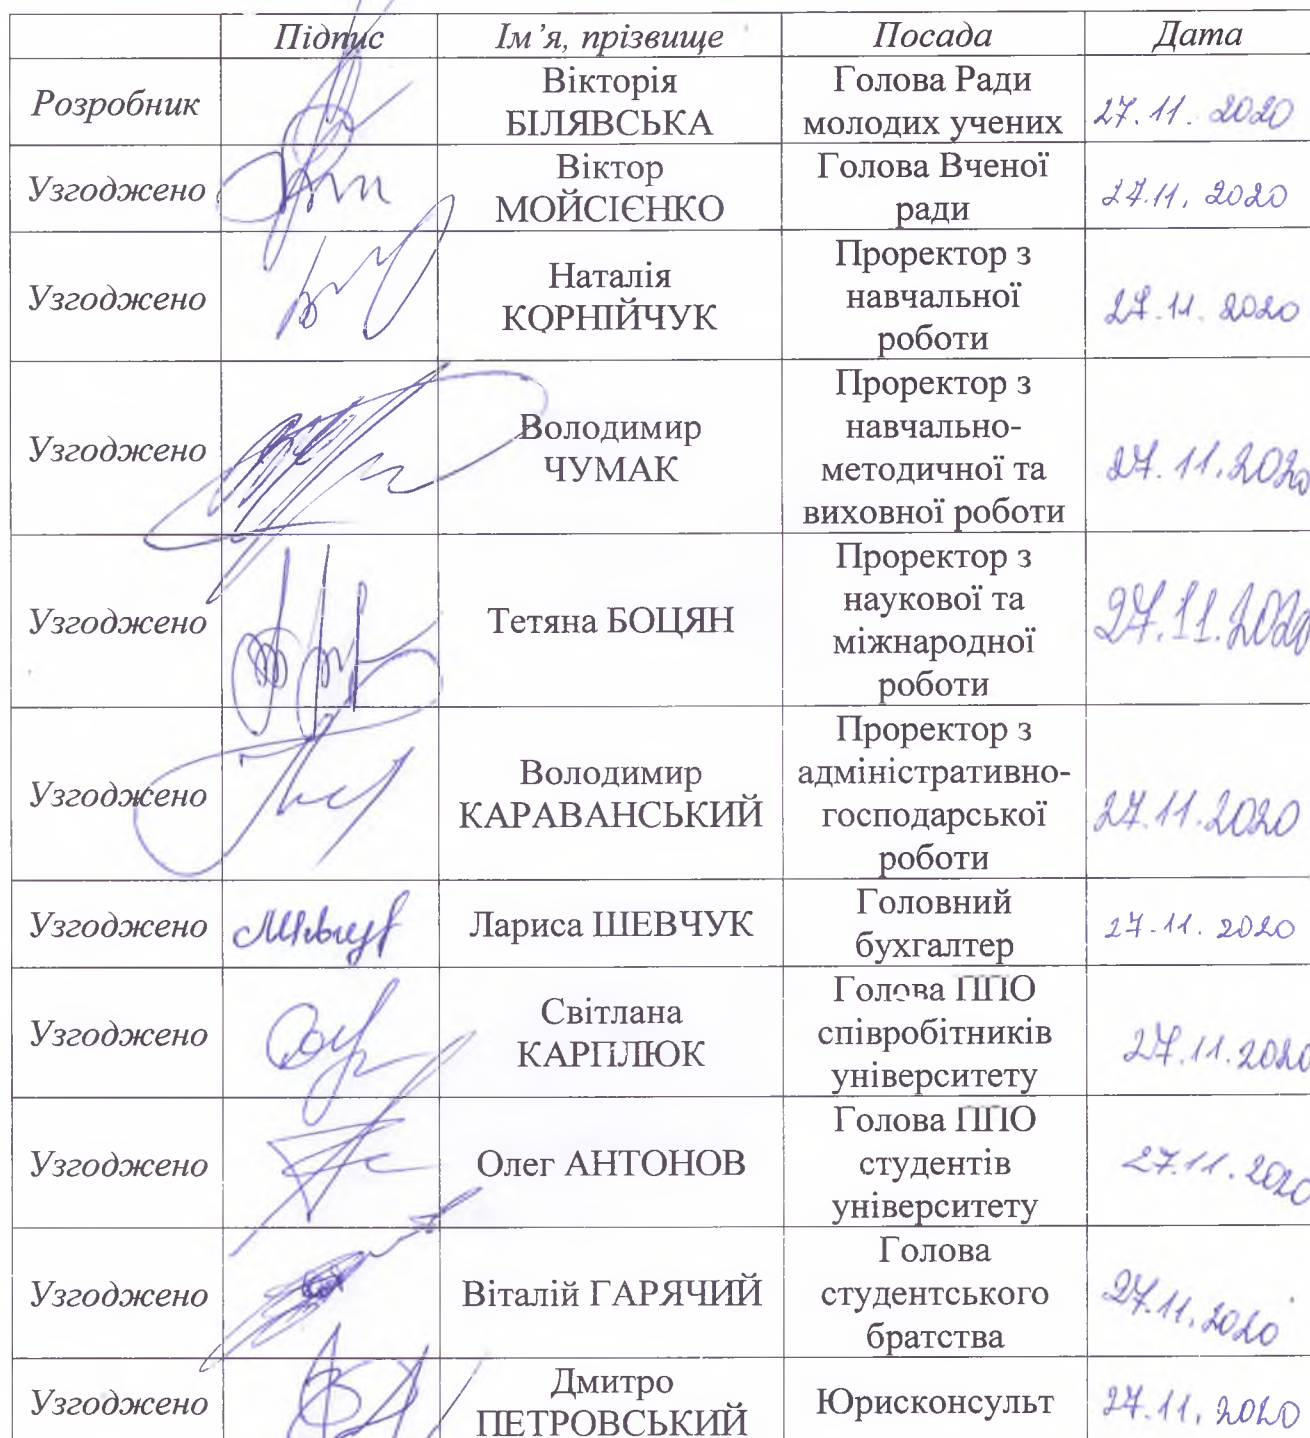 Підпис Ім’я, прізвище Посада Дата
Розробник Вікторія БІЛЯВСЬКА Голова Ради молодих учених 27.11.2020
Узгоджено Віктор МОЙСІЄНКО Голова Вченої ради 27.11.2020
Узгоджено Наталія КОРНІЙЧУК Проректор з навчальної роботи 27.11.2020
Узгоджено Володимир ЧУМАК Проректор з навчально-методичної та виховної роботи 27.11.2020
Узгоджено Тетяна БОЦЯН Проректор з наукової та міжнародної роботи 27.11.2020
Узгоджено Володимир КАРАВАНСЬКИЙ Проректор з адміністративно-господарської роботи 27.11.2020
Узгоджено Лариса ШЕВЧУК Головний бухгалтер 27.11.2020
Узгоджено Світлана КАРПЛЮК Голова ППО співробітників університету 27.11.2020
Узгоджено Олег АНТОНОВ Голова ППО студентів університету 27.11.2020
Узгоджено Віталій ГАРЯЧИЙ Голова студентського братства 27.11.2020
Узгоджено Дмитро ПЕТРОВСЬКИЙ Юрисконсульт 27.11.2020